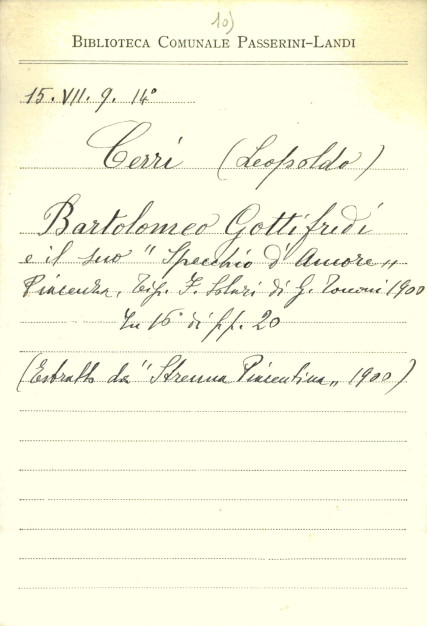 10)
BIBLIOTECA COMUNALE PASSERINI-LANDI
15. VII. 9. 14°
Cerri (Leopoldo)
Bartolomeo Gottifredi
e il suo "Specchio d'Amore„
Piacenza, Tip. F. Solari di G. Tononi 1900
In 16° di pp. 20
(Estratto da "Strenna Piacentina„ 1900)